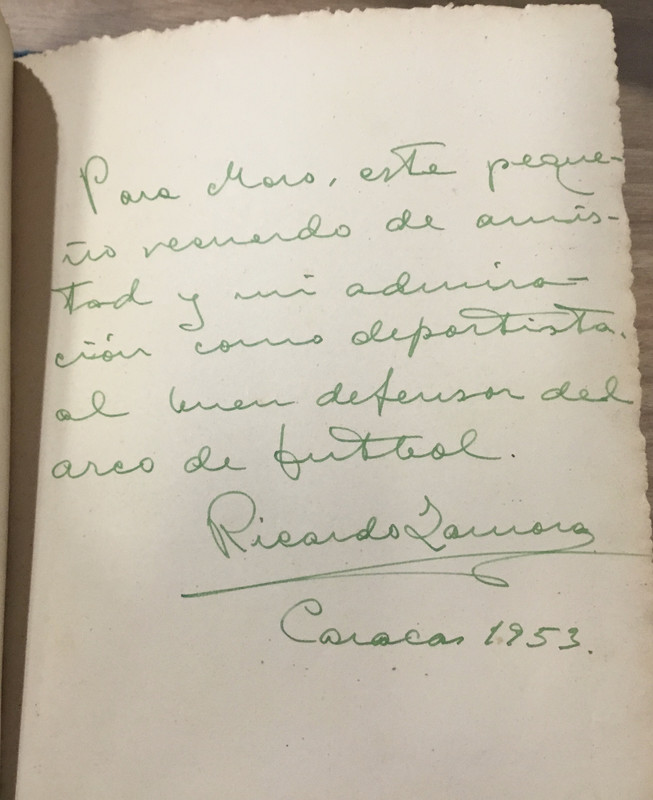 Para Moro, este peque-
ño recuerdo de amis-
tad y mi admira-
ción como deportista.
al buen defensor del
arco de futbol.
Ricardo Zamora
Caracas 1953.